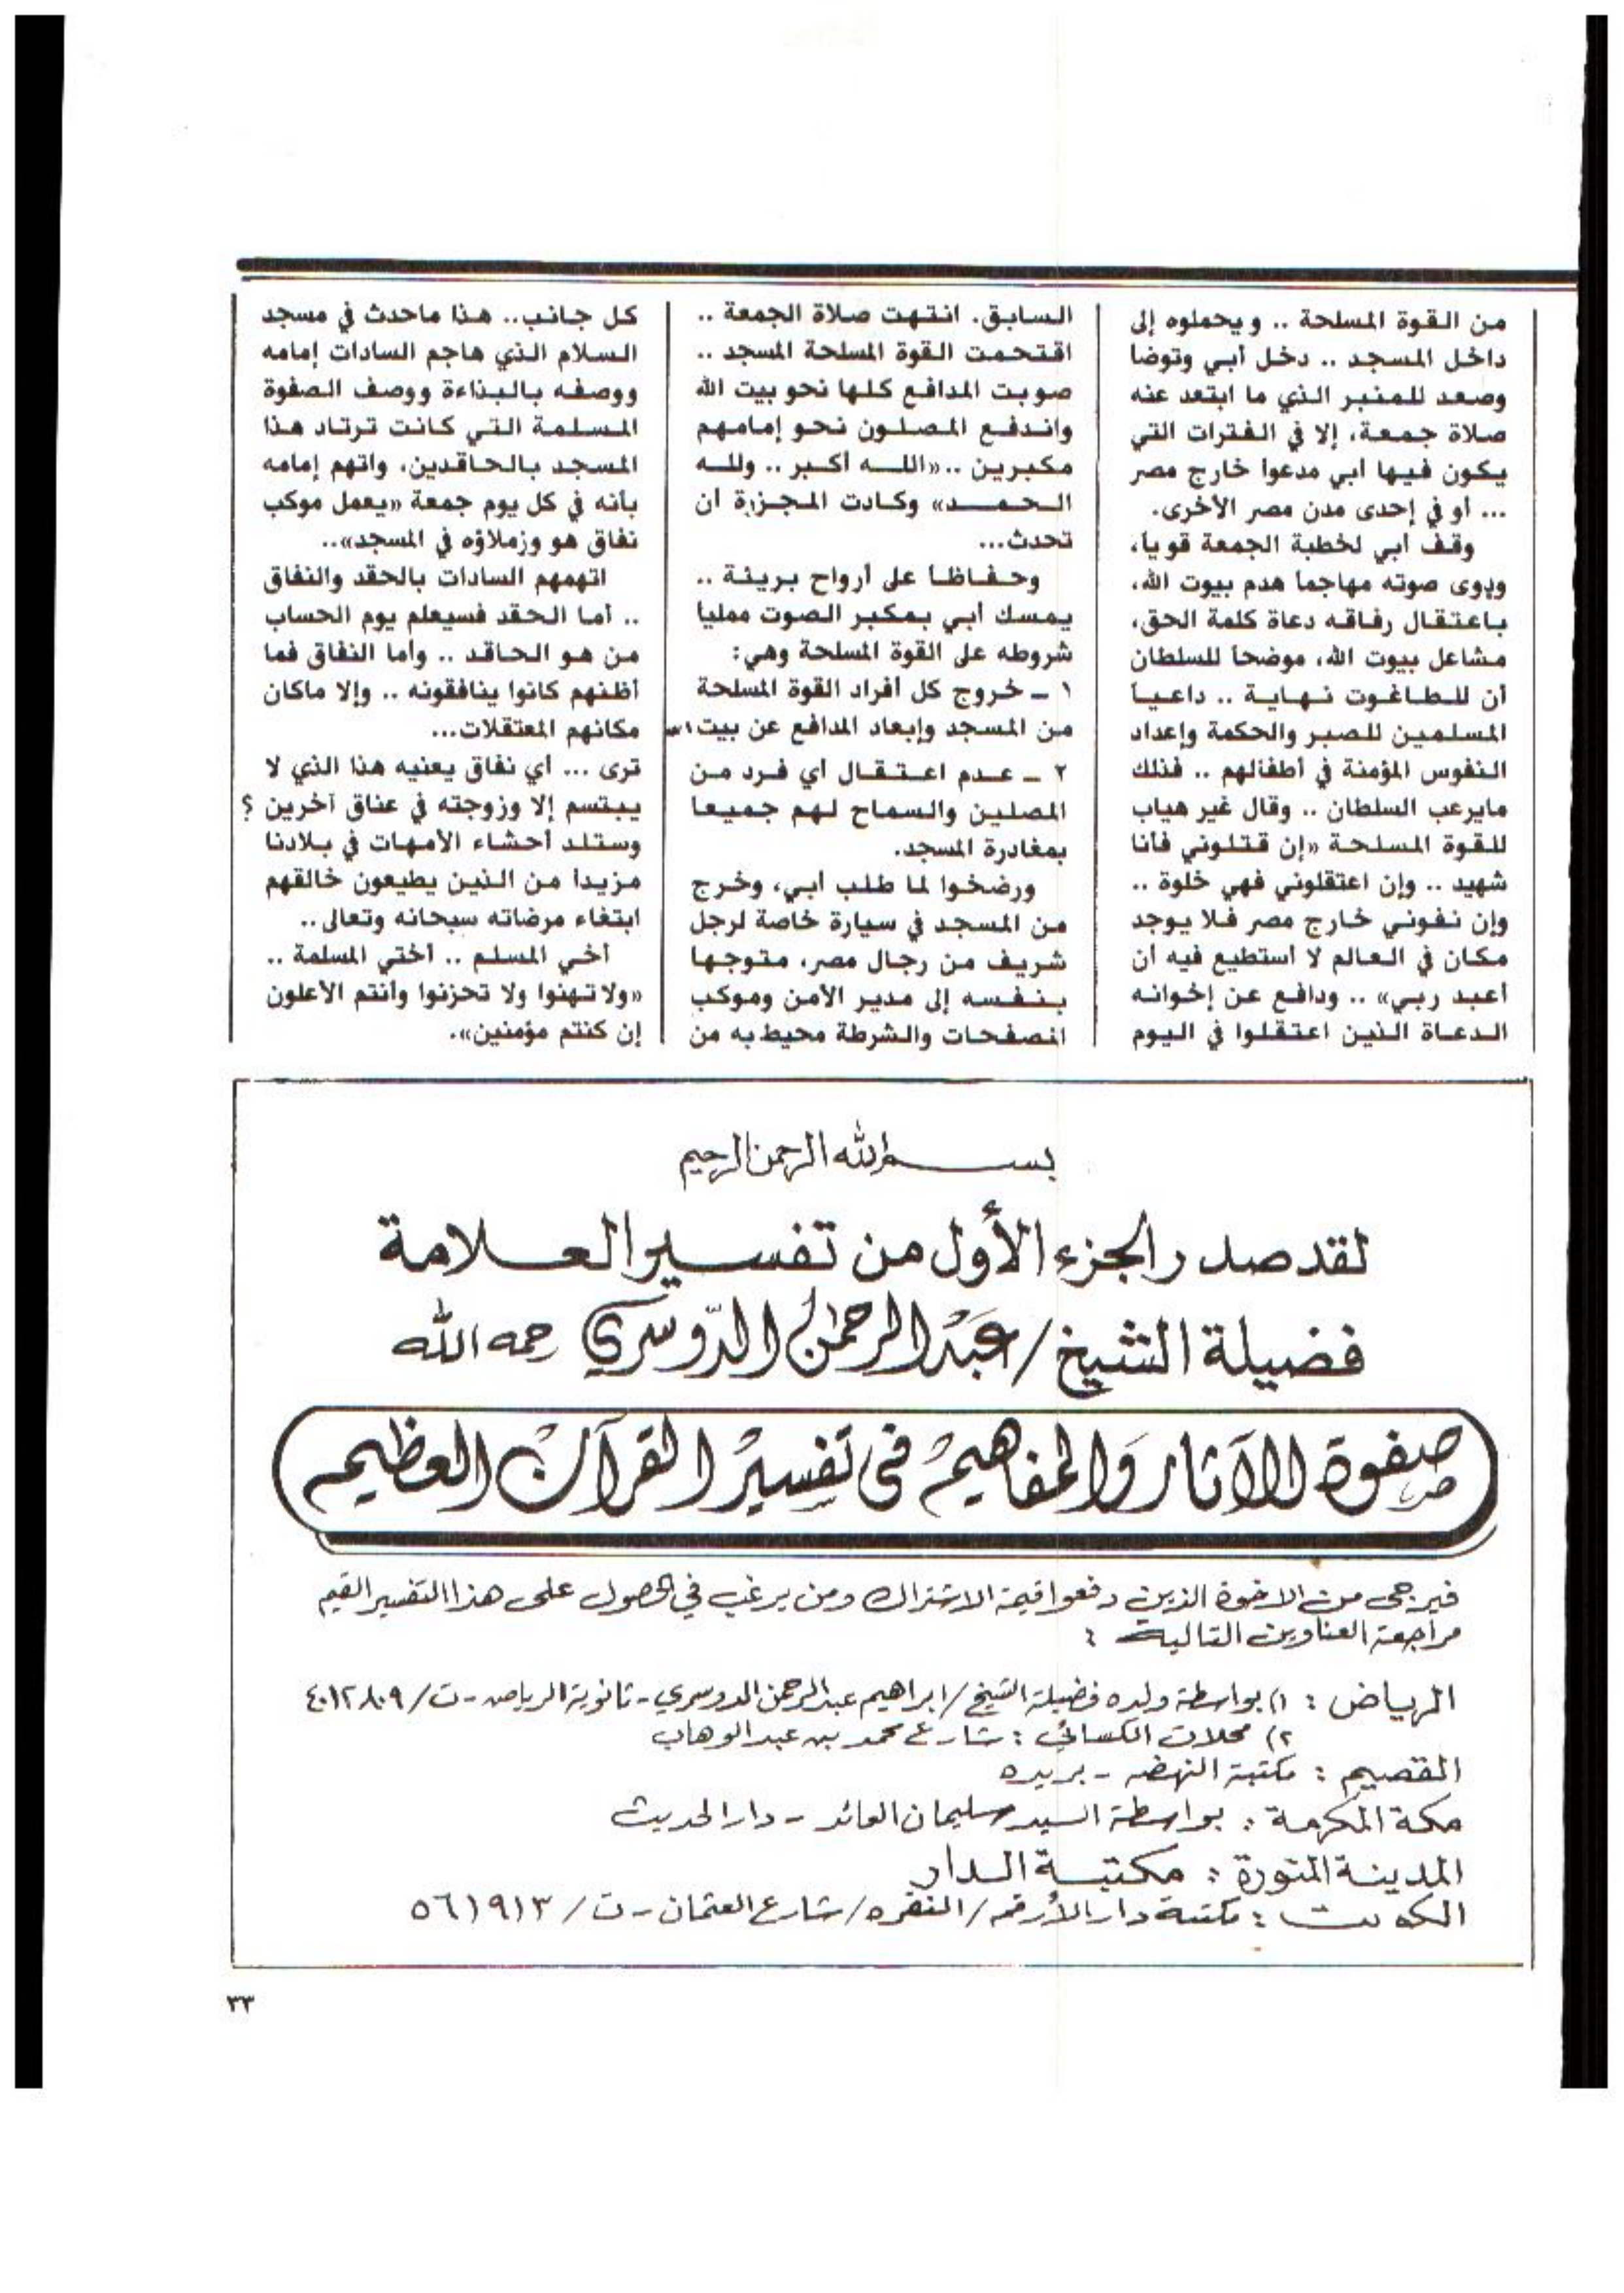 من القوة المسلحة .. ويحملوه إلى
داخل المسجد .. دخل أبي وتوضا
وصعد للمنبر الذي ما ابتعد عنه
صلاة جمعة، إلا في الفترات التي
يكون فيها أبي مدعوا خارج مصر
... أو في إحدى مدن مصر الأخرى.
وقف أبي لخطبة الجمعة قويا،
ودوى صوته مهاجما هدم بيوت الله،
باعتقال رفاقه دعاة كلمة الحق،
مشاعل بيوت الله، موضحاً للسلطان
أن للطاغوت نهاية .. داعياً
المسلمين للصبر والحكمة وإعداد
النفوس المؤمنة في أطفالهم .. فذلك
مايرعب السلطان .. وقال غير هياب
للقوة المسلحة «إن قتلوني فأنا
شهيد .. وإن اعتقلوني فهي خلوة ..
وإن نفوني خارج مصر فلا يوجد
مكان في العالم لا أستطيع فيه أن
أعبد ربي» .. ودافع عن إخوانه
الدعاة الذين اعتقلوا في اليوم
السابق. انتهت صلاة الجمعة ..
اقتحمت القوة المسلحة المسجد ..
صوبت المدافع كلها نحو بيت الله
واندفع المصلون نحو إمامهم
مكبرين ..«الله أكبر .. ولله
الحمد» وكادت المجزرة أن
تحدث...
وحفاظاً على أرواح بريئة ..
يمسك أبي بمكبر الصوت ممليا
شروطه على القوة المسلحة وهي:
١ - خروج كل أفراد القوة المسلحة
من المسجد وإبعاد المدافع عن بيت
٢ - عدم اعتقال أي فرد من
المصلين والسماح لهم جميعا
بمغادرة المسجد.
ورضخوا لما طلب أبي، وخرج
من المسجد في سيارة خاصة لرجل
شريف من رجال مصر، متوجها
بنفسه إلى مدير الأمن وموكب
المصفحات والشرطة محيط به من
كل جانب.. هذا ماحدث في مسجد
السلام الذي هاجم السادات إمامه
ووصفه بالبذاءة ووصف الصفوة
المسلمة التي كانت ترتاد هذا
المسجد بالحاقدين، واتهم إمامه
بأنه في كل يوم جمعة «يعمل موكب
نفاق هو وزملاؤه في المسجد»..
اتهمهم السادات بالحقد والنفاق
.. أما الحقد فسيعلم يوم الحساب
من هو الحاقد .. وأما النفاق فما
أظنهم كانوا ينافقونه .. وإلا ماكان
مكانهم المعتقلات...
ترى ... أي نفاق يعنيه هذا الذي لا
يبتسم إلا وزوجته في عناق آخرين ؟
وستلد أحشاء الأمهات في بلادنا
مزيداً من الذين يطيعون خالقهم
ابتغاء مرضاته سبحانه وتعالى ..
أخي المسلم .. أختي المسلمة ..
«ولا تهنوا ولا تحزنوا وأنتم الأعلون
إن كنتم مؤمنين».
بسم الله الرحمن الرحيم
لقد صدر الجزء الأول من تفسير العلامة
فضيلة الشيخ / عبد الرحمن الدوسري رحمه الله
صفوة الآثار والمفاهيم في تفسير القرآن العظيم
فيرجى من الاخوة الذين دفعوا قيمة الاشتراك ومن يرغب في الحصول على هذا التفسير القيم
مراجعة العناوين التالية :
الرياض : ١) بواسطة ولده فضيلة الشيخ / ابراهيم عبد الرحمن الدوسري - ثانوية الرياض - ت / ٤٠١٢٨٠٩
٢) محلات الكسائي : شارع محمد بن عبد الوهاب
القصيم : مكتبة النهضه - بريده
مكة المكرمة : بواسطة السيد سليمان العائد - دار الحديث
المدينة المنورة : مكتبة الدار
الكويت : مكتبة دار الأرقم / النقره / شارع العثمان - ت / ٥٦١٩١٣
٣٣